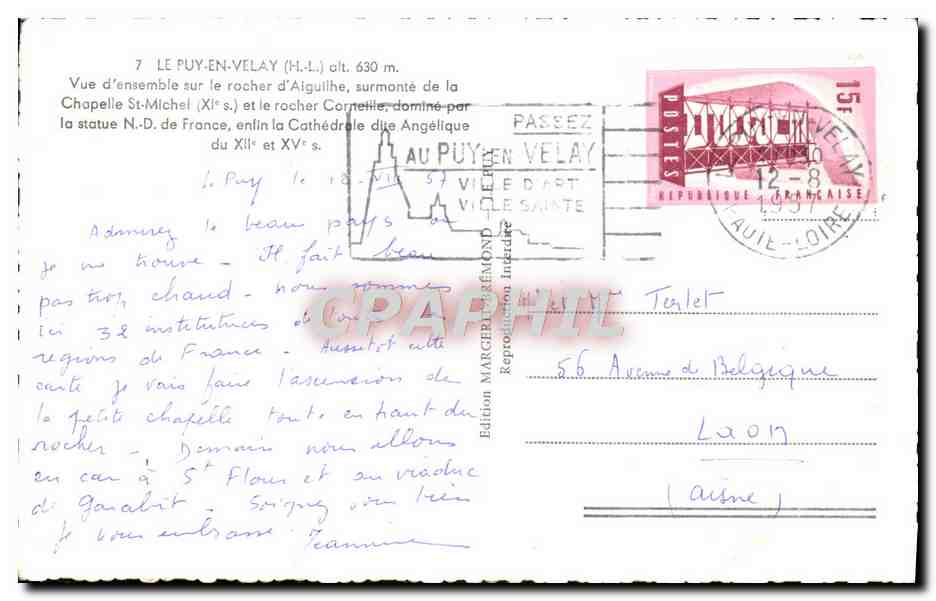 7 LE PUY-EN-VELAY (H.-L.) alt. 630 m.
Vue d'ensemble sur le rocher d'Aiguilhe, surmonté de la
Chapelle St-Michel (XIe s.) et le rocher Corneille, dominé par
la statue N.-D. de France, enfin la Cathédrale dite Angélique
du XIIe et XVe s.
Le Puy le 12 VIII 57
Admirez le beau pays où
je me trouve - Il fait beau
pas trop chaud - nous sommes
ici 32 institutrices de toutes les
régions de France - Aussitôt cette
carte je vais faire l'ascension de
la petite chapelle toute en haut du
rocher - Demain nous allons
en car à St Flour et au viaduc
de Garabit - Soignez vous bien
Je vous embrasse Jeannine
PASSEZ
AU PUY EN VELAY
VILLE D'ART
VILLE SAINTE
15F
POSTES
REPUBLIQUE FRANÇAISE
VELAY
12-8
1957
HAUTE-LOIRE
Edition MARGERIT-BRÉMOND - LE PUY
Reproduction Interdite
CPAPHIL
Mr et Mme Terlet
56 Avenue de Belgique
Laon
(Aisne)